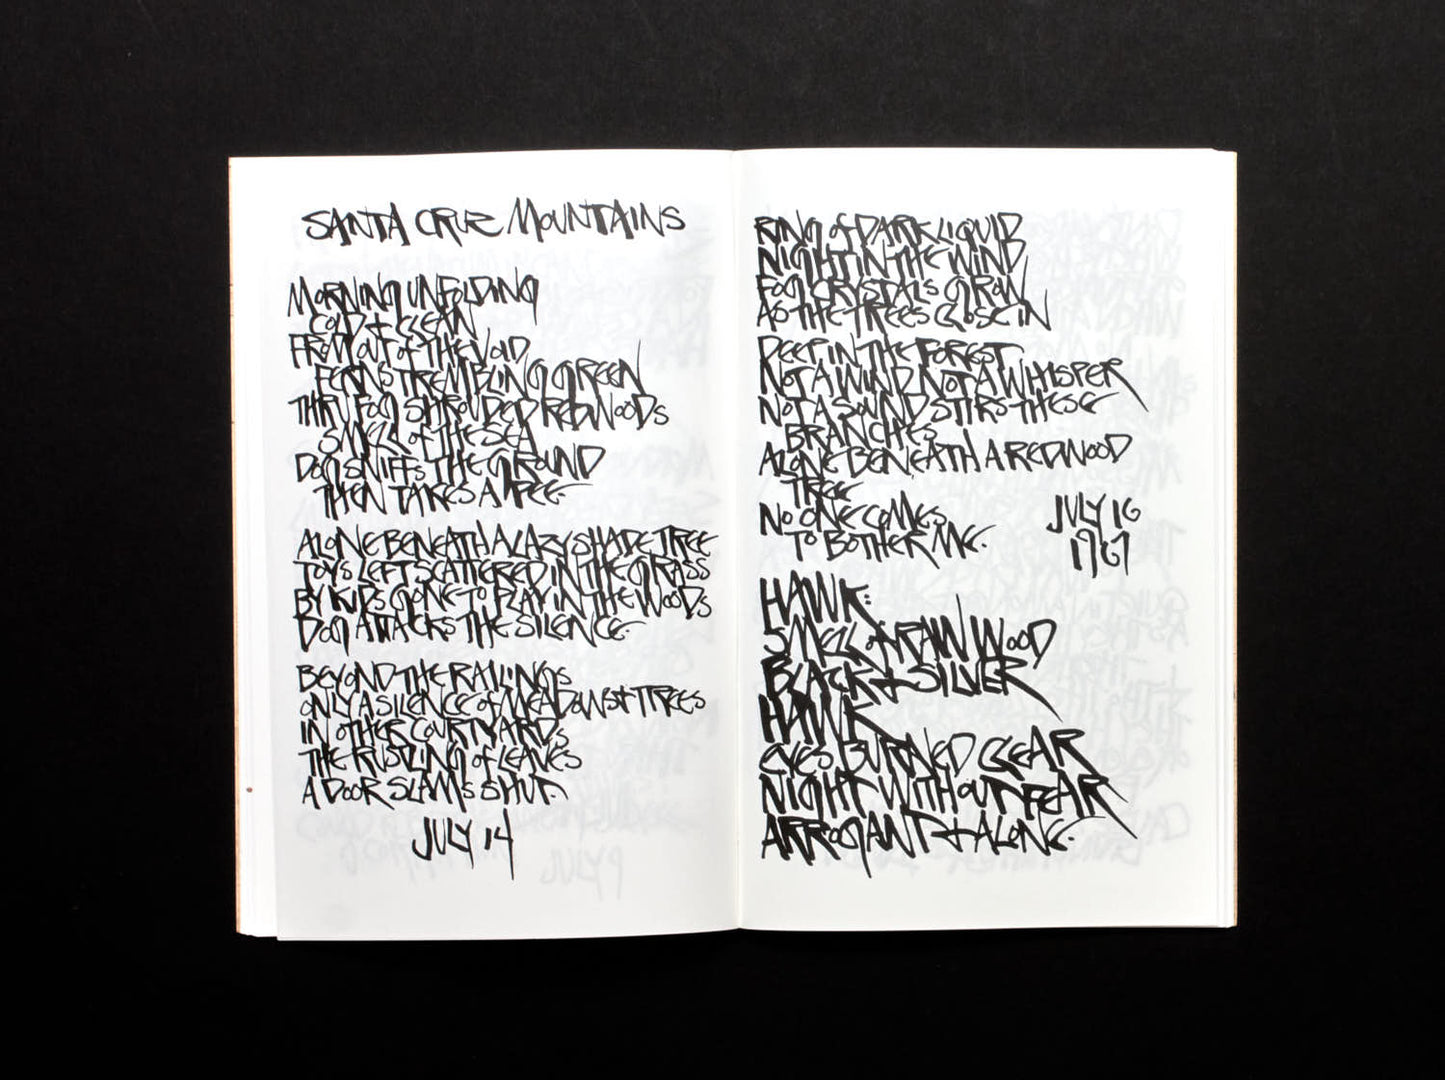 SANTA CRUZ MOUNTAINS
MORNING UNFOLDING
COLD + CLEAN
FROM OUT OF THE VOID
FERNS TREMBLING GREEN
THRU FOG SHROUDED REDWOODS
SMELL OF THE SEA
DOG SNIFFS THE GROUND
THEN TAKES A PEE.
ALONE BENEATH A LAZY SHADE TREE
TOYS LEFT SCATTERED IN THE GRASS
BY KIDS GONE TO PLAY IN THE WOODS
DOG ATTACKS THE SILENCE.
BEYOND THE RAILINGS
ONLY A SILENCE OF MEADOWS + TREES
IN OTHER COURTYARDS
THE RUSTLING OF LEAVES
A DOOR SLAMS SHUT.
JULY 14
RING OF DARK LIQUID
NIGHT IN THE WIND
FOG CRYSTALS GROW
AS THE TREES CLOSE IN
DEEP IN THE FOREST
NOT A WIND NOT A WHISPER
NOT A SOUND STIRS THESE
BRANCHES
ALONE BENEATH A REDWOOD
TREE
NO ONE COMES
TO BOTHER ME.
JULY 16
1967
HAWK:
SMELL OF RAW WOOD
BLACK + SILVER
HAWK
EYES BURNED CLEAR
NIGHT WITHOUT FEAR
ARROGANT + ALONE.